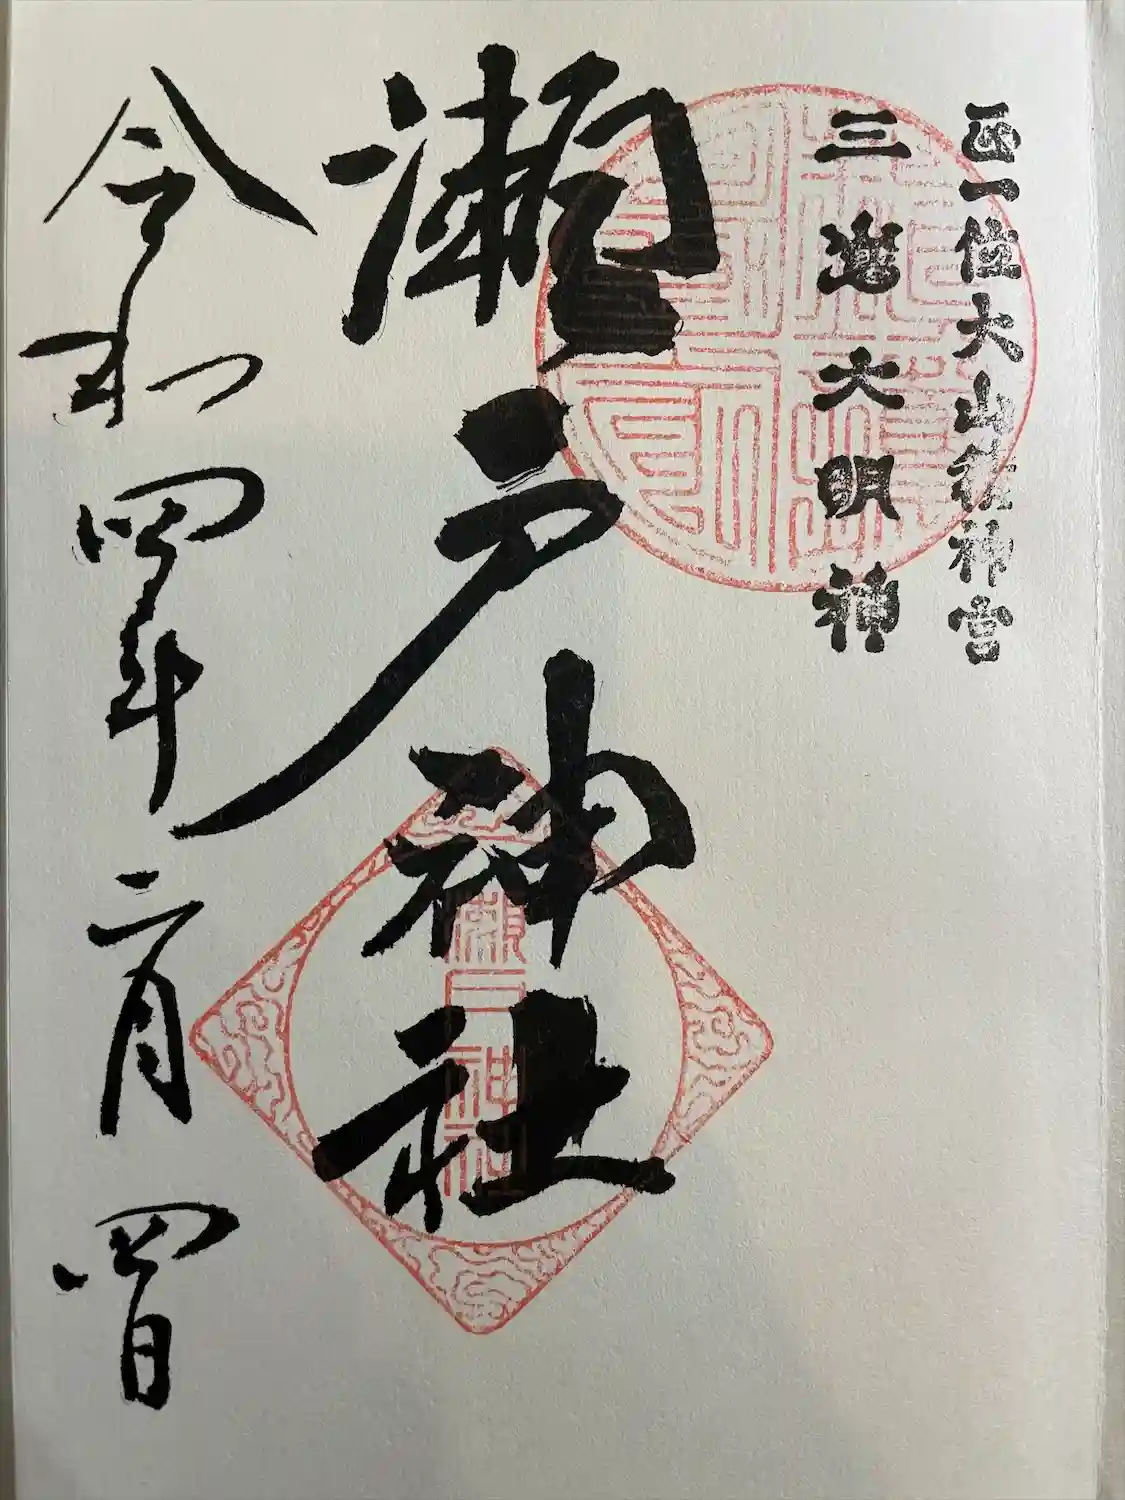 正一位大山積神宮
三嶋大明神
瀬戸神社
令和四年二月四日
瀬戸神社